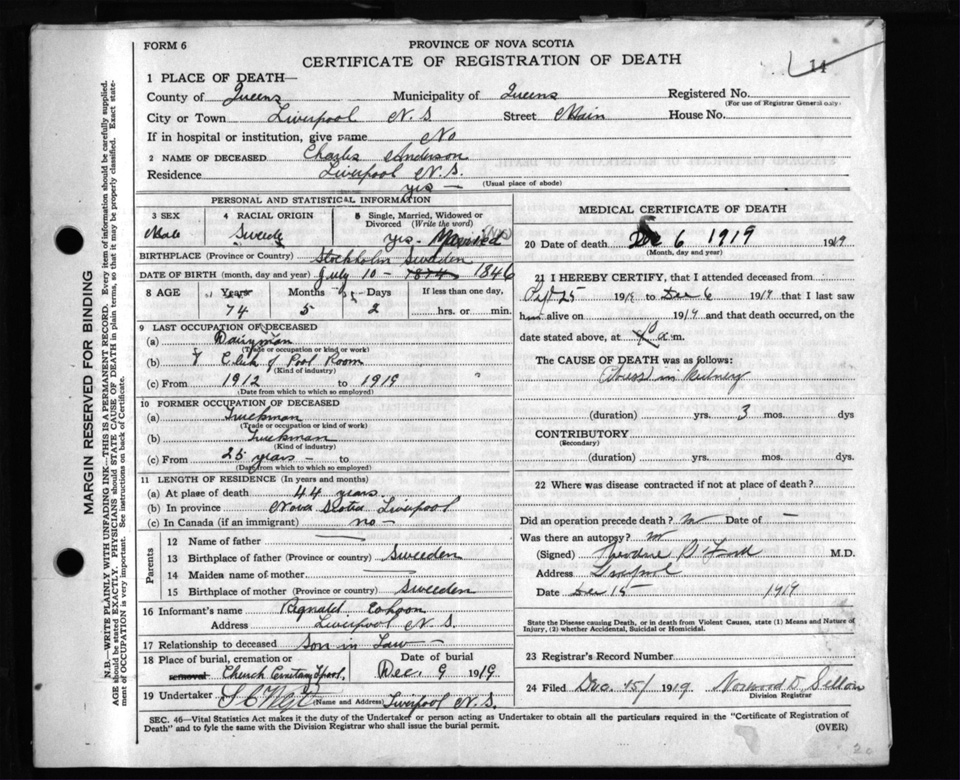 FORM 6
PROVINCE OF NOVA SCOTIA
CERTIFICATE OF REGISTRATION OF DEATH
14
1 PLACE OF DEATH—
County of Queens Municipality of Queens Registered No.
(For use of Registrar General only)
City or Town Liverpool N.S Street Main House No.
If in hospital or institution, give name No
2 NAME OF DECEASED Charles Anderson
Residence Liverpool N.S.
(Usual place of abode)
yes —
PERSONAL AND STATISTICAL INFORMATION
3 SEX 4 RACIAL ORIGIN 5 Single, Married, Widowed or Divorced (Write the word)
Male Swede yes. Married
BIRTHPLACE (Province or Country) Stockholm Sweden
DATE OF BIRTH (month, day and year) July 10 – 1874 1846
8 AGE Years Months Days If less than one day,
74 5 2 hrs. or min.
9 LAST OCCUPATION OF DECEASED
(a) Dairyman
(Trade or occupation or kind of work)
(b) Clerk of Pool Room
(Kind of industry)
(c) From 1912 to 1919
(Date from which to which so employed)
10 FORMER OCCUPATION OF DECEASED
(a) Truckman
(Trade or occupation or kind of work)
(b) Truckman
(Kind of industry)
(c) From 25 years – to
(Date from which to which so employed)
11 LENGTH OF RESIDENCE (In years and months)
(a) At place of death 44 years
(b) In province Nova Scotia Liverpool
(c) In Canada (if an immigrant) no –
Parents
12 Name of father —
13 Birthplace of father (Province or country) Sweeden
14 Maiden name of mother —
15 Birthplace of mother (Province or country) Sweeden
16 Informant's name Reginald Cohoon
Address Liverpool N.S.
17 Relationship to deceased Son in Law
18 Place of burial, cremation or removal Date of burial
Church Cemetery Dec. 9 1919
19 Undertaker
(Name and Address) Liverpool N.S.
MEDICAL CERTIFICATE OF DEATH
20 Date of death Dec 6 1919 1919
(Month, day and year)
21 I HEREBY CERTIFY, that I attended deceased from
Sept 25 1919 to Dec 6 1919 that I last saw
him alive on 1919 and that death occurred, on the
date stated above, at 10 a m.
The CAUSE OF DEATH was as follows:
Abscess in kidney
(duration) yrs. 3 mos. dys
CONTRIBUTORY
(Secondary)
(duration) yrs. mos. dys.
22 Where was disease contracted if not at place of death?
Did an operation precede death? no Date of –
Was there an autopsy? no
(Signed) Theodore B. Ford M.D.
Address Liverpool
Date Dec 15 1919
State the Disease causing Death, or in death from Violent Causes, state (1) Means and Nature of
Injury, (2) whether Accidental, Suicidal or Homicidal.
23 Registrar's Record Number
24 Filed Dec. 15/ 1919 Norwood D. Sellon
Division Registrar
SEC. 46—Vital Statistics Act makes it the duty of the Undertaker or person acting as Undertaker to obtain all the particulars required in the "Certificate of Registration of
Death" and to fyle the same with the Division Registrar who shall issue the burial permit.
(OVER)
MARGIN RESERVED FOR BINDING
N.B.—WRITE PLAINLY WITH UNFADING INK—THIS IS A PERMANENT RECORD. Every item of information should be carefully supplied.
AGE should be stated EXACTLY. PHYSICIANS should STATE CAUSE OF DEATH in plain terms, so that it may be properly classified. Exact state-
ment of OCCUPATION is very important. See instructions on back of Certificate.